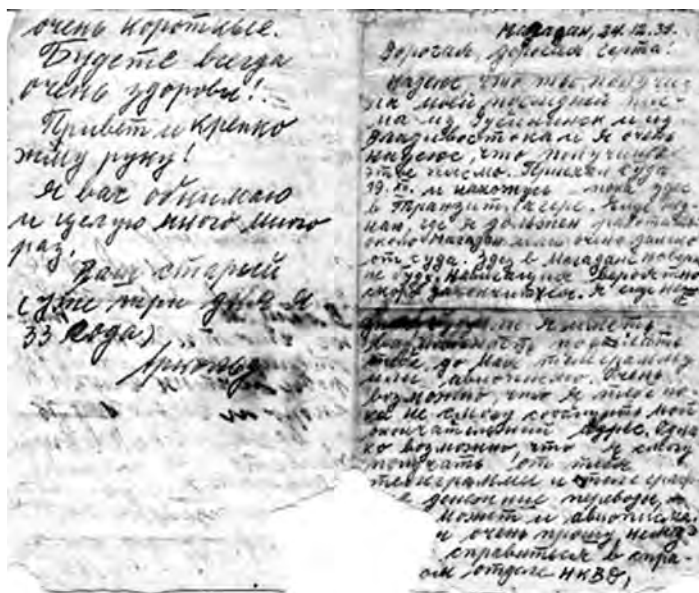 очень короткые.
Будете всегда
очень здоровы!
Привет и крепко
жму руку!
Я вас обнимаю
и целую много много
раз.
Ваш старый
(уже три дня я
33 года)
Магадан, 24.12.39.
Дорогая, дорогая Герта!
Надеюс что ты получи-
ла моей последней пис-
ма из и из
Владивостока и я очень
надеюс, что получишь
это писмо. Приехал сюда
19. XII. и нахожусь пока здес
в Транзит лагере. Я еще не
знаю, где я должен работать
около Магадан или очень далеко
от сюда. Здес в Магадан
не буду, навигация вероятно
скоро закончится. Я еще не
ли я иметь
возможност,
тебе до мая телеграммы
или авиописмо. Очень
возможно, что я тебе по-
ка не смогу сообщить мой
окончательный адрес. Одна-
ко возможно, что я смогу
получать от тебя
телеграммы и телеграф
денежние переводы,
может и авиописма.
и очень прошу
справиться в спра-
ом отделе НКВД,